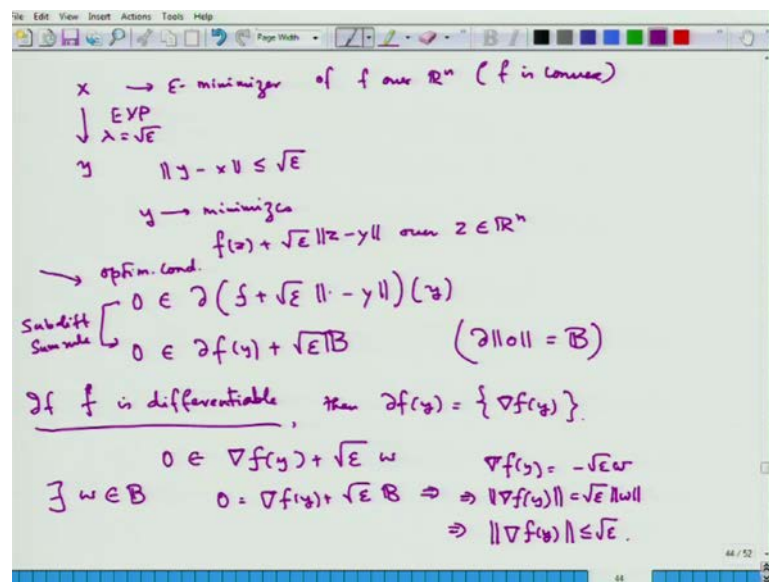 File Edit View Insert Actions Tools Help
Page Width
x → ε- minimizer of f over ℝⁿ (f is convex)
↓ EVP
λ = √ε
y ‖y - x‖ ≤ √ε
y → minimizes
f(z) + √ε ‖z - y‖ over z ∈ ℝⁿ
→ optim. cond.
0 ∈ ∂(f + √ε ‖· - y‖)(y)
Subdiff
Sum rule
0 ∈ ∂f(y) + √ε 𝔹 (∂‖0‖ = 𝔹)
If f is differentiable, then ∂f(y) = {∇f(y)}.
0 ∈ ∇f(y) + √ε w ∇f(y) = -√ε w
∃ w ∈ 𝔹 0 = ∇f(y) + √ε 𝔹 ⇒ ⇒ ‖∇f(y)‖ = √ε ‖w‖
⇒ ‖∇f(y)‖ ≤ √ε.
44 / 52
44